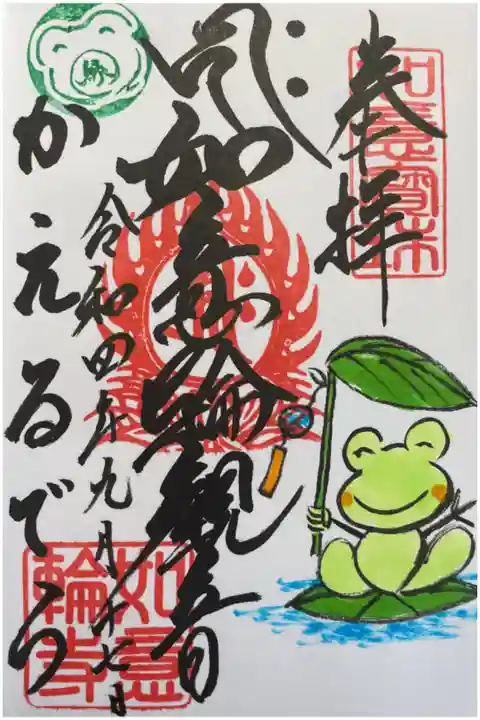 奉拝
如意寳珠
如意輪観音
令和四年九月十七日
かえるでら
如意輪寺